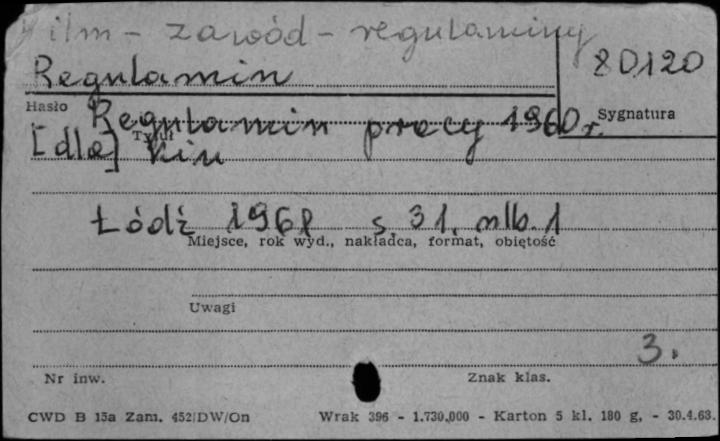 Film - zawód - regulaminy
Regulamin
80120
Hasło
Sygnatura
Regulamin pracy 1960 r.
Tytuł
[dla] kin
Łódź 1961 s. 31, nlb. 1
Miejsce, rok wyd., nakładca, format, objętość
Uwagi
3.
Nr inw.
Znak klas.
CWD B 15a Zam. 452/DW/On Wrak 396 - 1.730.000 - Karton 5 kl. 180 g. - 30.4.63.